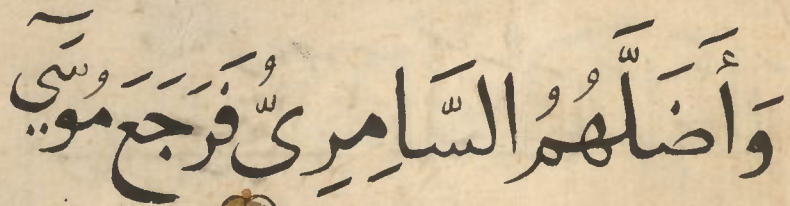 وَأَضَلَّهُمُ السَّامِرِىُّ فَرَجَعَ مُوسَٓي